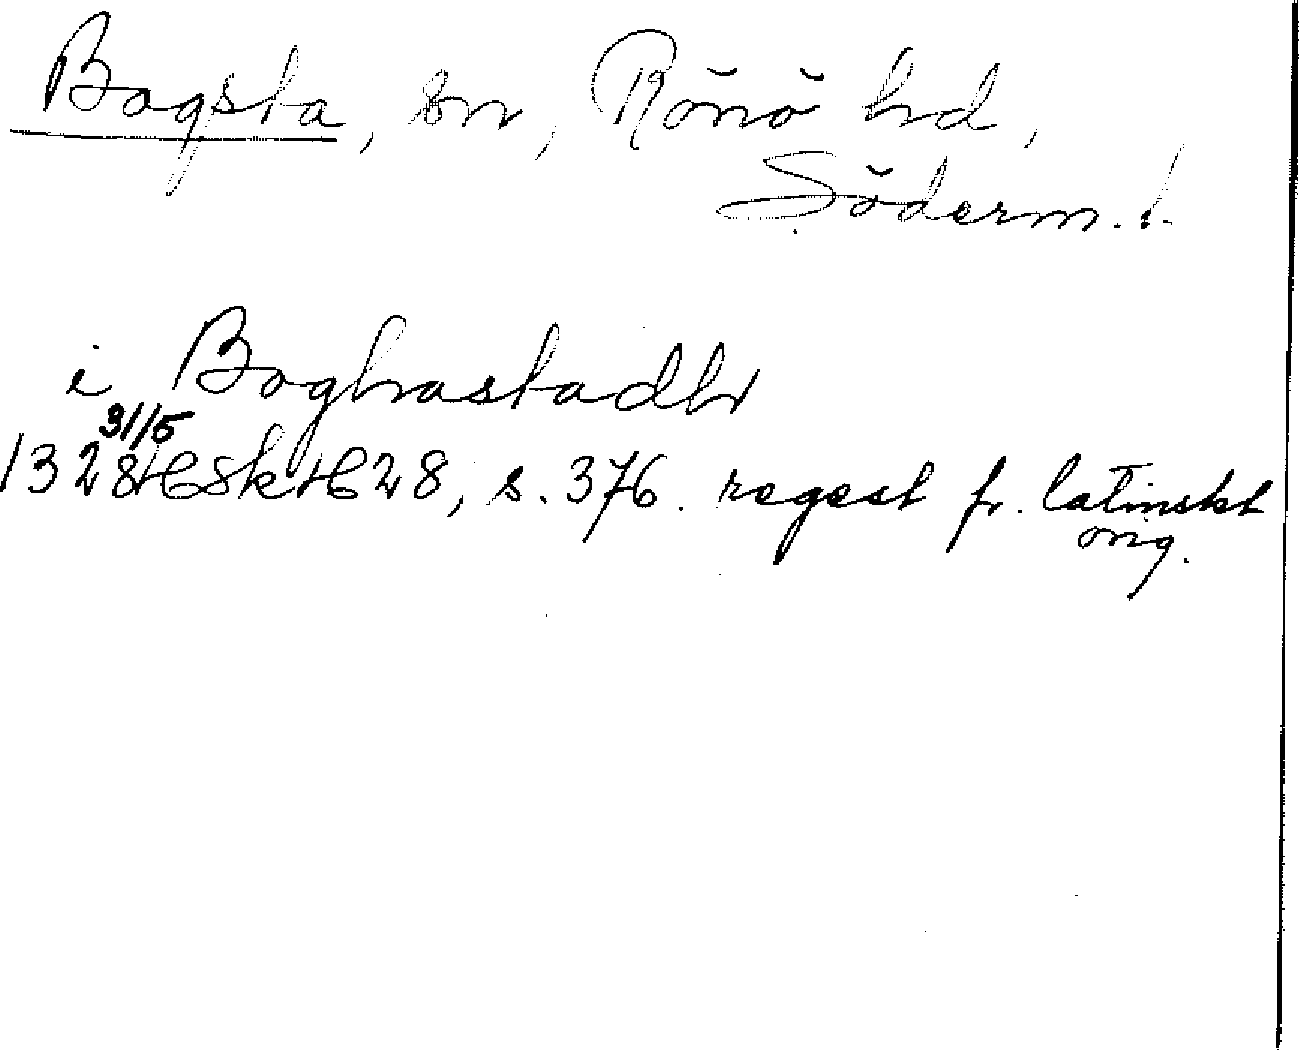 Bogsta, sn, Rönö hd,
Söderm. l.
i Boghastadhr
31/5
1328 HSkH 28, s. 376. regest fr. latinskt
orig.